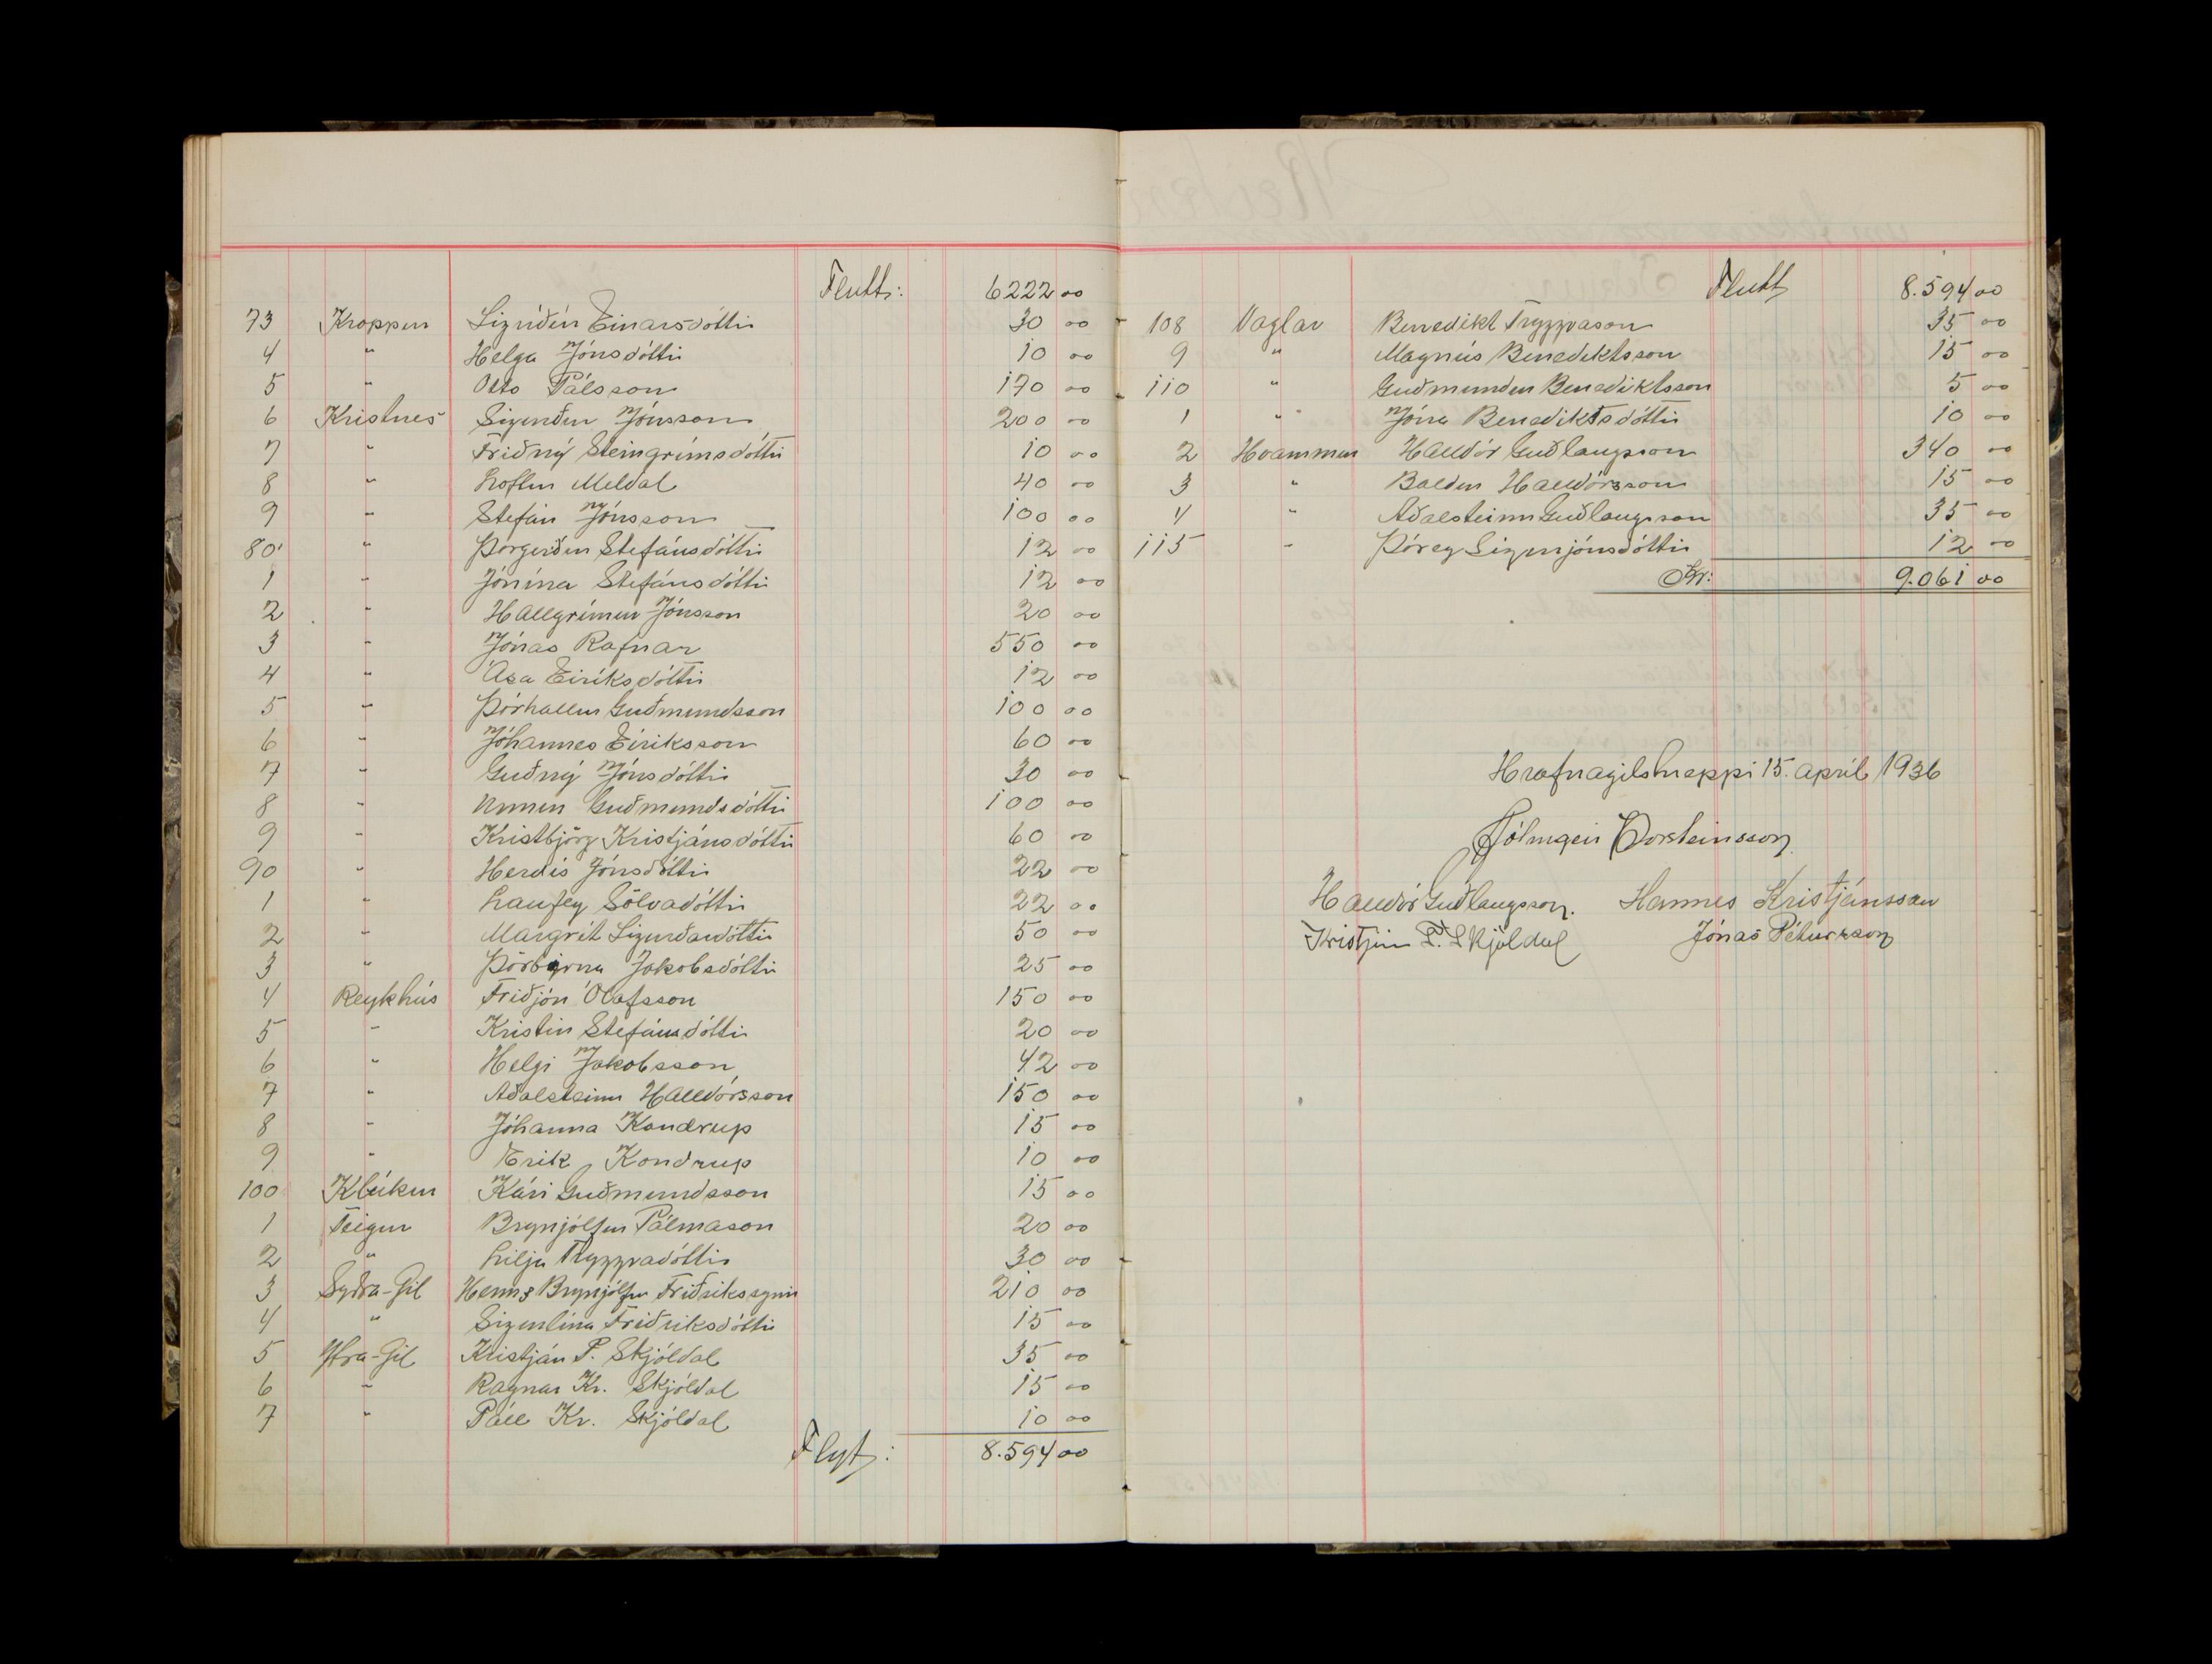 Flutt: 6222 00
73 Kroppur Sigríður Einarsdóttir 30 00
4 " Helga Jónsdóttir 10 00
5 " Otto Pálsson 170 00
6 Kristnes Sigurður Jónsson 200 00
7 " Friðný Steingrímsdóttir 10 00
8 " Loftur Meldal 40 00
9 " Stefán Jónsson 100 00
80 " Þorgerður Stefánsdóttir 12 00
1 " Jónína Stefánsdóttir 12 00
2 " Hallgrímur Jónsson 20 00
3 " Jónas Rafnar 550 00
4 " Ása Eiríksdóttir 12 00
5 " Þórhallur Guðmundsson 100 00
6 " Jóhannes Eiríksson 60 00
7 " Guðný Jónsdóttir 30 00
8 " Unnur Guðmundsdóttir 100 00
9 " Kristbjörg Kristjánsdóttir 60 00
90 " Herdís Jónsdóttir 22 00
1 " Laufey Sölvadóttir 22 00
2 " Margrét Sigurðardóttir 50 00
3 " Þorbjörna Jakobsdóttir 25 00
4 Reykhús Friðjón Ólafsson 150 00
5 " Kristín Stefánsdóttir 20 00
6 " Helgi Jakobsson 42 00
7 " Aðalsteinn Halldórsson 150 00
8 " Jóhanna Kondrup 15 00
9 " Erik Kondrup 10 00
100 Klúkur Kári Guðmundsson 15 00
1 Teigur Brynjólfur Pálmason 20 00
2 " Lilja Tryggvadóttir 30 00
3 Syðra-Gil Hennis Brynjólfur Friðrikssynir 210 00
4 " Sigurlína Friðriksdóttir 15 00
5 Ytra-Gil Kristján P. Skjóldal 35 00
6 " Ragnar Kr. Skjóldal 15 00
7 " Páll Kr. Skjóldal 10 00
Flyt: 8.594 00
Flutt 8.594 00
108 Vaglar Benedikt Tryggvason 35 00
9 " Magnús Benediktsson 15 00
110 " Guðmundur Benediktsson 5 00
1 " Jóna Benediktsdóttir 10 00
2 Hvammur Halldór Guðlaugsson 340 00
3 " Baldur Halldórsson 15 00
4 " Aðalsteinn Guðlaugsson 35 00
115 " Þórey Sigurjónsdóttir 12 00
Kr: 9.061 00
Hrafnagilshreppi 15. apríl 1936
Hólmgeir Þorsteinsson
Halldór Guðlaugsson. Hannes Kristjánsson
Kristján P. Skjóldal Jónas Pétursson